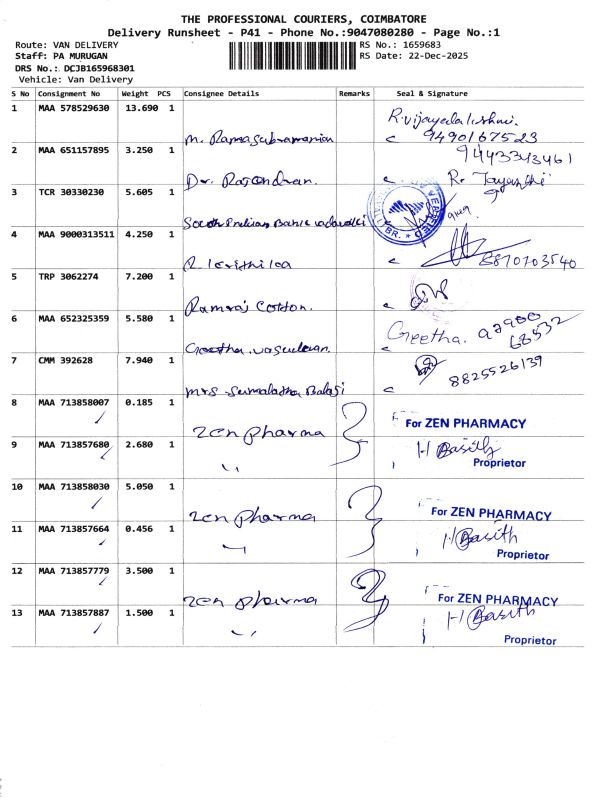 THE PROFESSIONAL COURIERS, COIMBATORE
Delivery Runsheet - P41 - Phone No.:9047080280 - Page No.:1
Route: VAN DELIVERY RS No.: 1659683
Staff: PA MURUGAN RS Date: 22-Dec-2025
DRS No.: DCJB165968301
Vehicle: Van Delivery
S No Consignment No Weight PCS Consignee Details Remarks Seal & Signature
1 MAA 578529630 13.690 1 M. Ramasubramanian R. Vijayalakshmi. 9490167523
2 MAA 651157895 3.250 1 Dr. Rajendran. 9443343461 R. Jayanthi
3 TCR 30330230 5.605 1 South Indian Bank
4 MAA 9000313511 4.250 1 8870703540
5 TRP 3062274 7.200 1 Ramraj Cotton.
6 MAA 652325359 5.580 1 Geetha vasudevan. Geetha. 97900 68532
7 CMM 392628 7.940 1 Mrs Sumalatha Balaji 8825526139
8 MAA 713858007 0.185 1 Zen pharma For ZEN PHARMACY
9 MAA 713857680 2.680 1 " H Basith
Proprietor
10 MAA 713858030 5.050 1 Zen pharma For ZEN PHARMACY
11 MAA 713857664 0.456 1 " H Basith
Proprietor
12 MAA 713857779 3.500 1 Zen pharma For ZEN PHARMACY
13 MAA 713857887 1.500 1 " H Basith
Proprietor